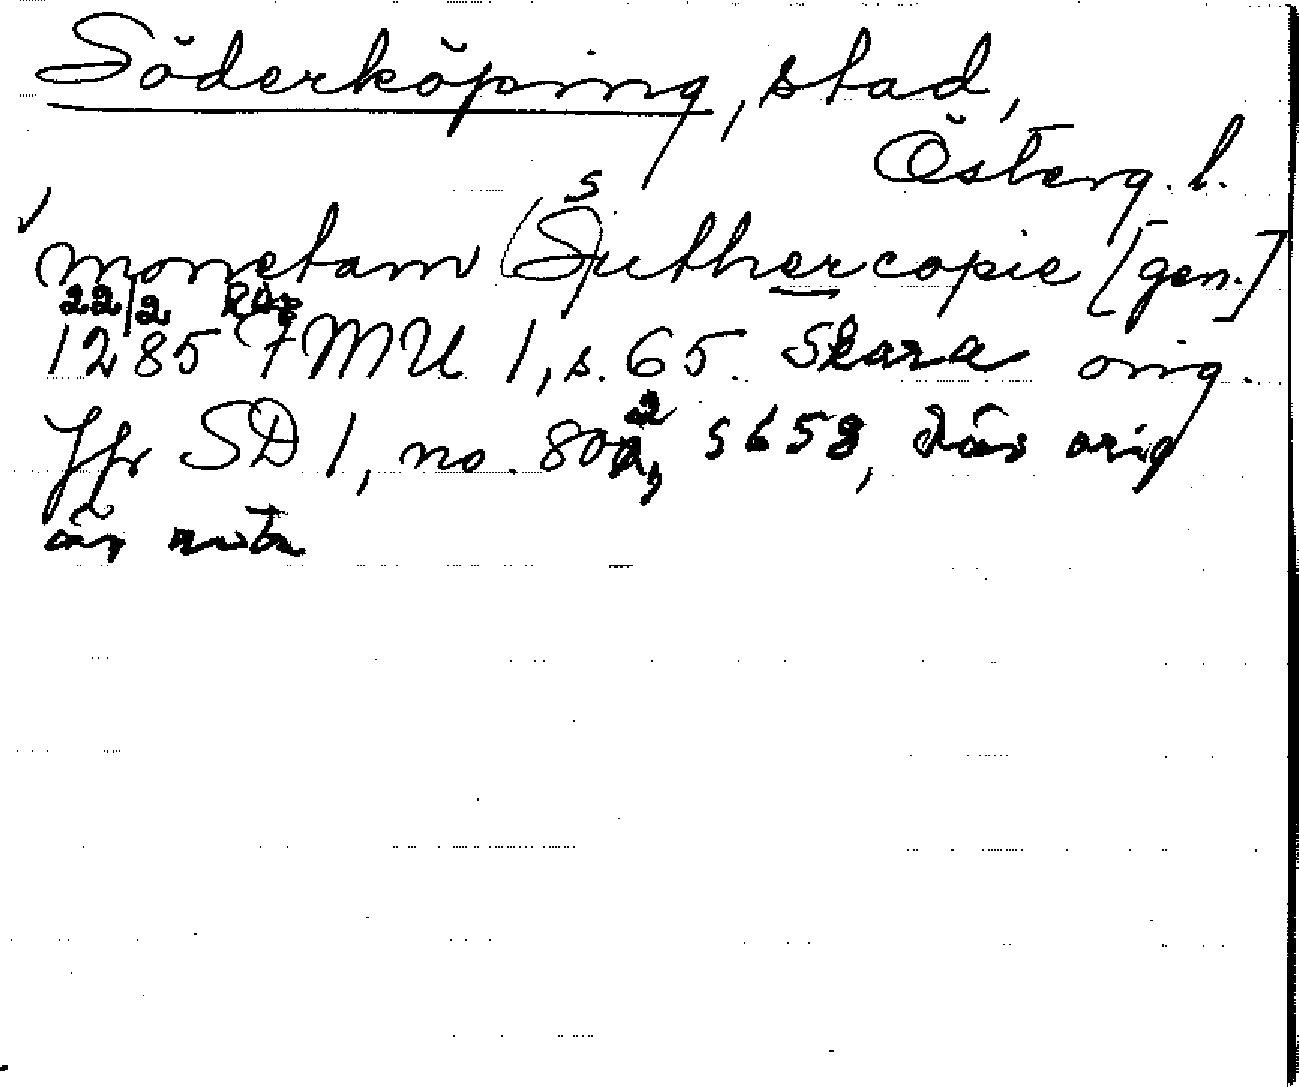 Söderköping, stad,
Österg. l.
✓ s
monetam (S)uthercopie [gen.]
22/2
1285 FMU 1, s. 65. Skara orig.
Jfr SD 1, no. 802, s 658, där orig
är